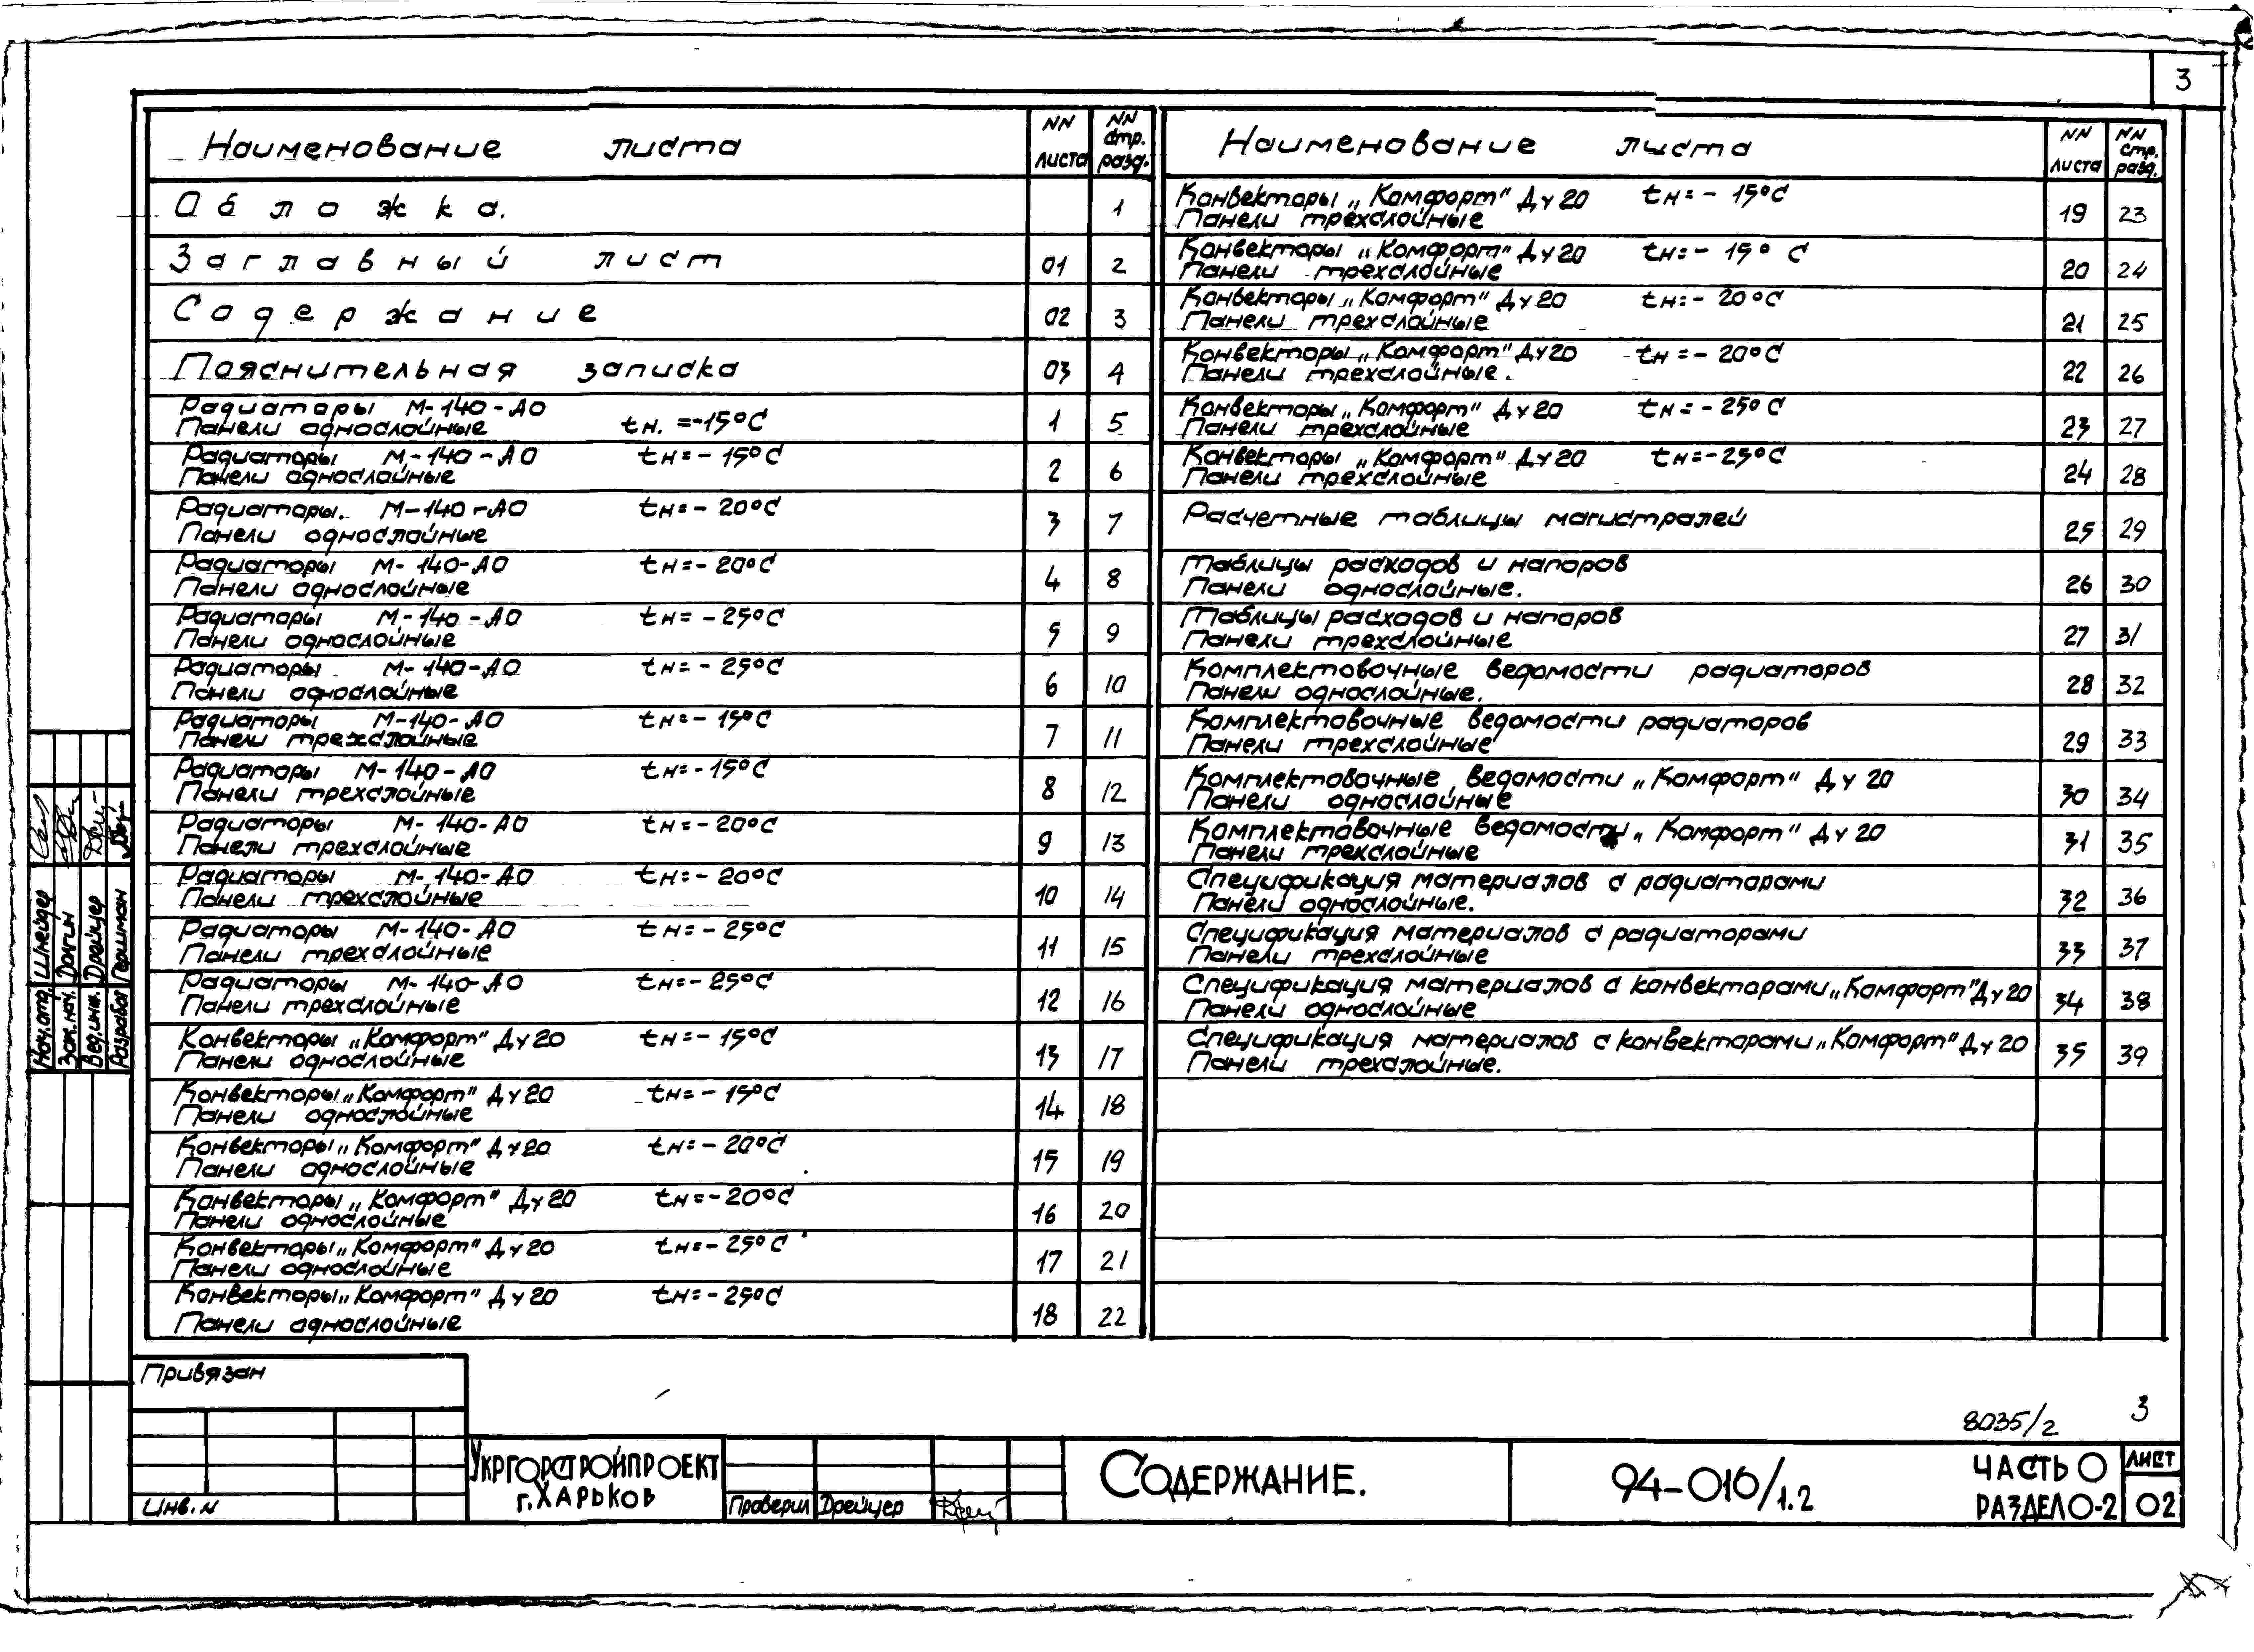 3
Наименование листа NN листа NN стр. разд.
Обложка. 1
Заглавный лист 01 2
Содержание 02 3
Пояснительная записка 03 4
Радиаторы М-140-АО
Панели однослойные tн. =-15°С 1 5
Радиаторы М-140-АО tн=-15°С
Панели однослойные 2 6
Радиаторы. М-140-АО tн=-20°С
Панели однослойные 3 7
Радиаторы М-140-АО tн=-20°С
Панели однослойные 4 8
Радиаторы М-140-АО tн=-25°С
Панели однослойные 5 9
Радиаторы М-140-АО tн=-25°С
Панели однослойные 6 10
Радиаторы М-140-АО tн=-15°С
Панели трехслойные 7 11
Радиаторы М-140-АО tн=-15°С
Панели трехслойные 8 12
Радиаторы М-140-АО tн=-20°С
Панели трехслойные 9 13
Радиаторы М-140-АО tн=-20°С
Панели трехслойные 10 14
Радиаторы М-140-АО tн=-25°С
Панели трехслойные 11 15
Радиаторы М-140-АО tн=-25°С
Панели трехслойные 12 16
Конвекторы „Комфорт" Ду20 tн=-15°С
Панели однослойные 13 17
Конвекторы „Комфорт" Ду20 tн=-15°С
Панели однослойные 14 18
Конвекторы „Комфорт" Ду20 tн=-20°С
Панели однослойные 15 19
Конвекторы „Комфорт" Ду20 tн=-20°С
Панели однослойные 16 20
Конвекторы „Комфорт" Ду20 tн=-25°С
Панели однослойные 17 21
Конвекторы „Комфорт" Ду20 tн=-25°С
Панели однослойные 18 22
Наименование листа NN листа NN стр. разд.
Конвекторы „Комфорт" Ду20 tн=-15°С
Панели трехслойные 19 23
Конвекторы „Комфорт" Ду20 tн=-15°С
Панели трехслойные 20 24
Конвекторы „Комфорт" Ду20 tн=-20°С
Панели трехслойные 21 25
Конвекторы „Комфорт" Ду20 tн=-20°С
Панели трехслойные. 22 26
Конвекторы „Комфорт" Ду20 tн=-25°С
Панели трехслойные 23 27
Конвекторы „Комфорт" Ду20 tн=-25°С
Панели трехслойные 24 28
Расчетные таблицы магистралей 25 29
Таблицы расходов и напоров
Панели однослойные. 26 30
Таблицы расходов и напоров
Панели трехслойные 27 31
Комплектовочные ведомости радиаторов
Панели однослойные. 28 32
Комплектовочные ведомости радиаторов
Панели трехслойные 29 33
Комплектовочные ведомости „Комфорт" Ду 20
Панели однослойные 30 34
Комплектовочные ведомости „Комфорт" Ду 20
Панели трехслойные 31 35
Спецификация материалов с радиаторами
Панели однослойные. 32 36
Спецификация материалов с радиаторами
Панели трехслойные 33 37
Спецификация материалов с конвекторами „Комфорт" Ду 20
Панели однослойные 34 38
Спецификация материалов с конвекторами „Комфорт" Ду 20
Панели трехслойные. 35 39
Нач.отд. Шнейдер
Зам.нач. Долгин
Вед.инж. Дрейцер
Разработ Гершман
Привязан
Инв.N
Укргорстройпроект
г.Харьков
Проверил Дрейцер
Содержание.
8035/2 3
94-016/1.2
Часть 0
Раздел 0-2
Лист
02